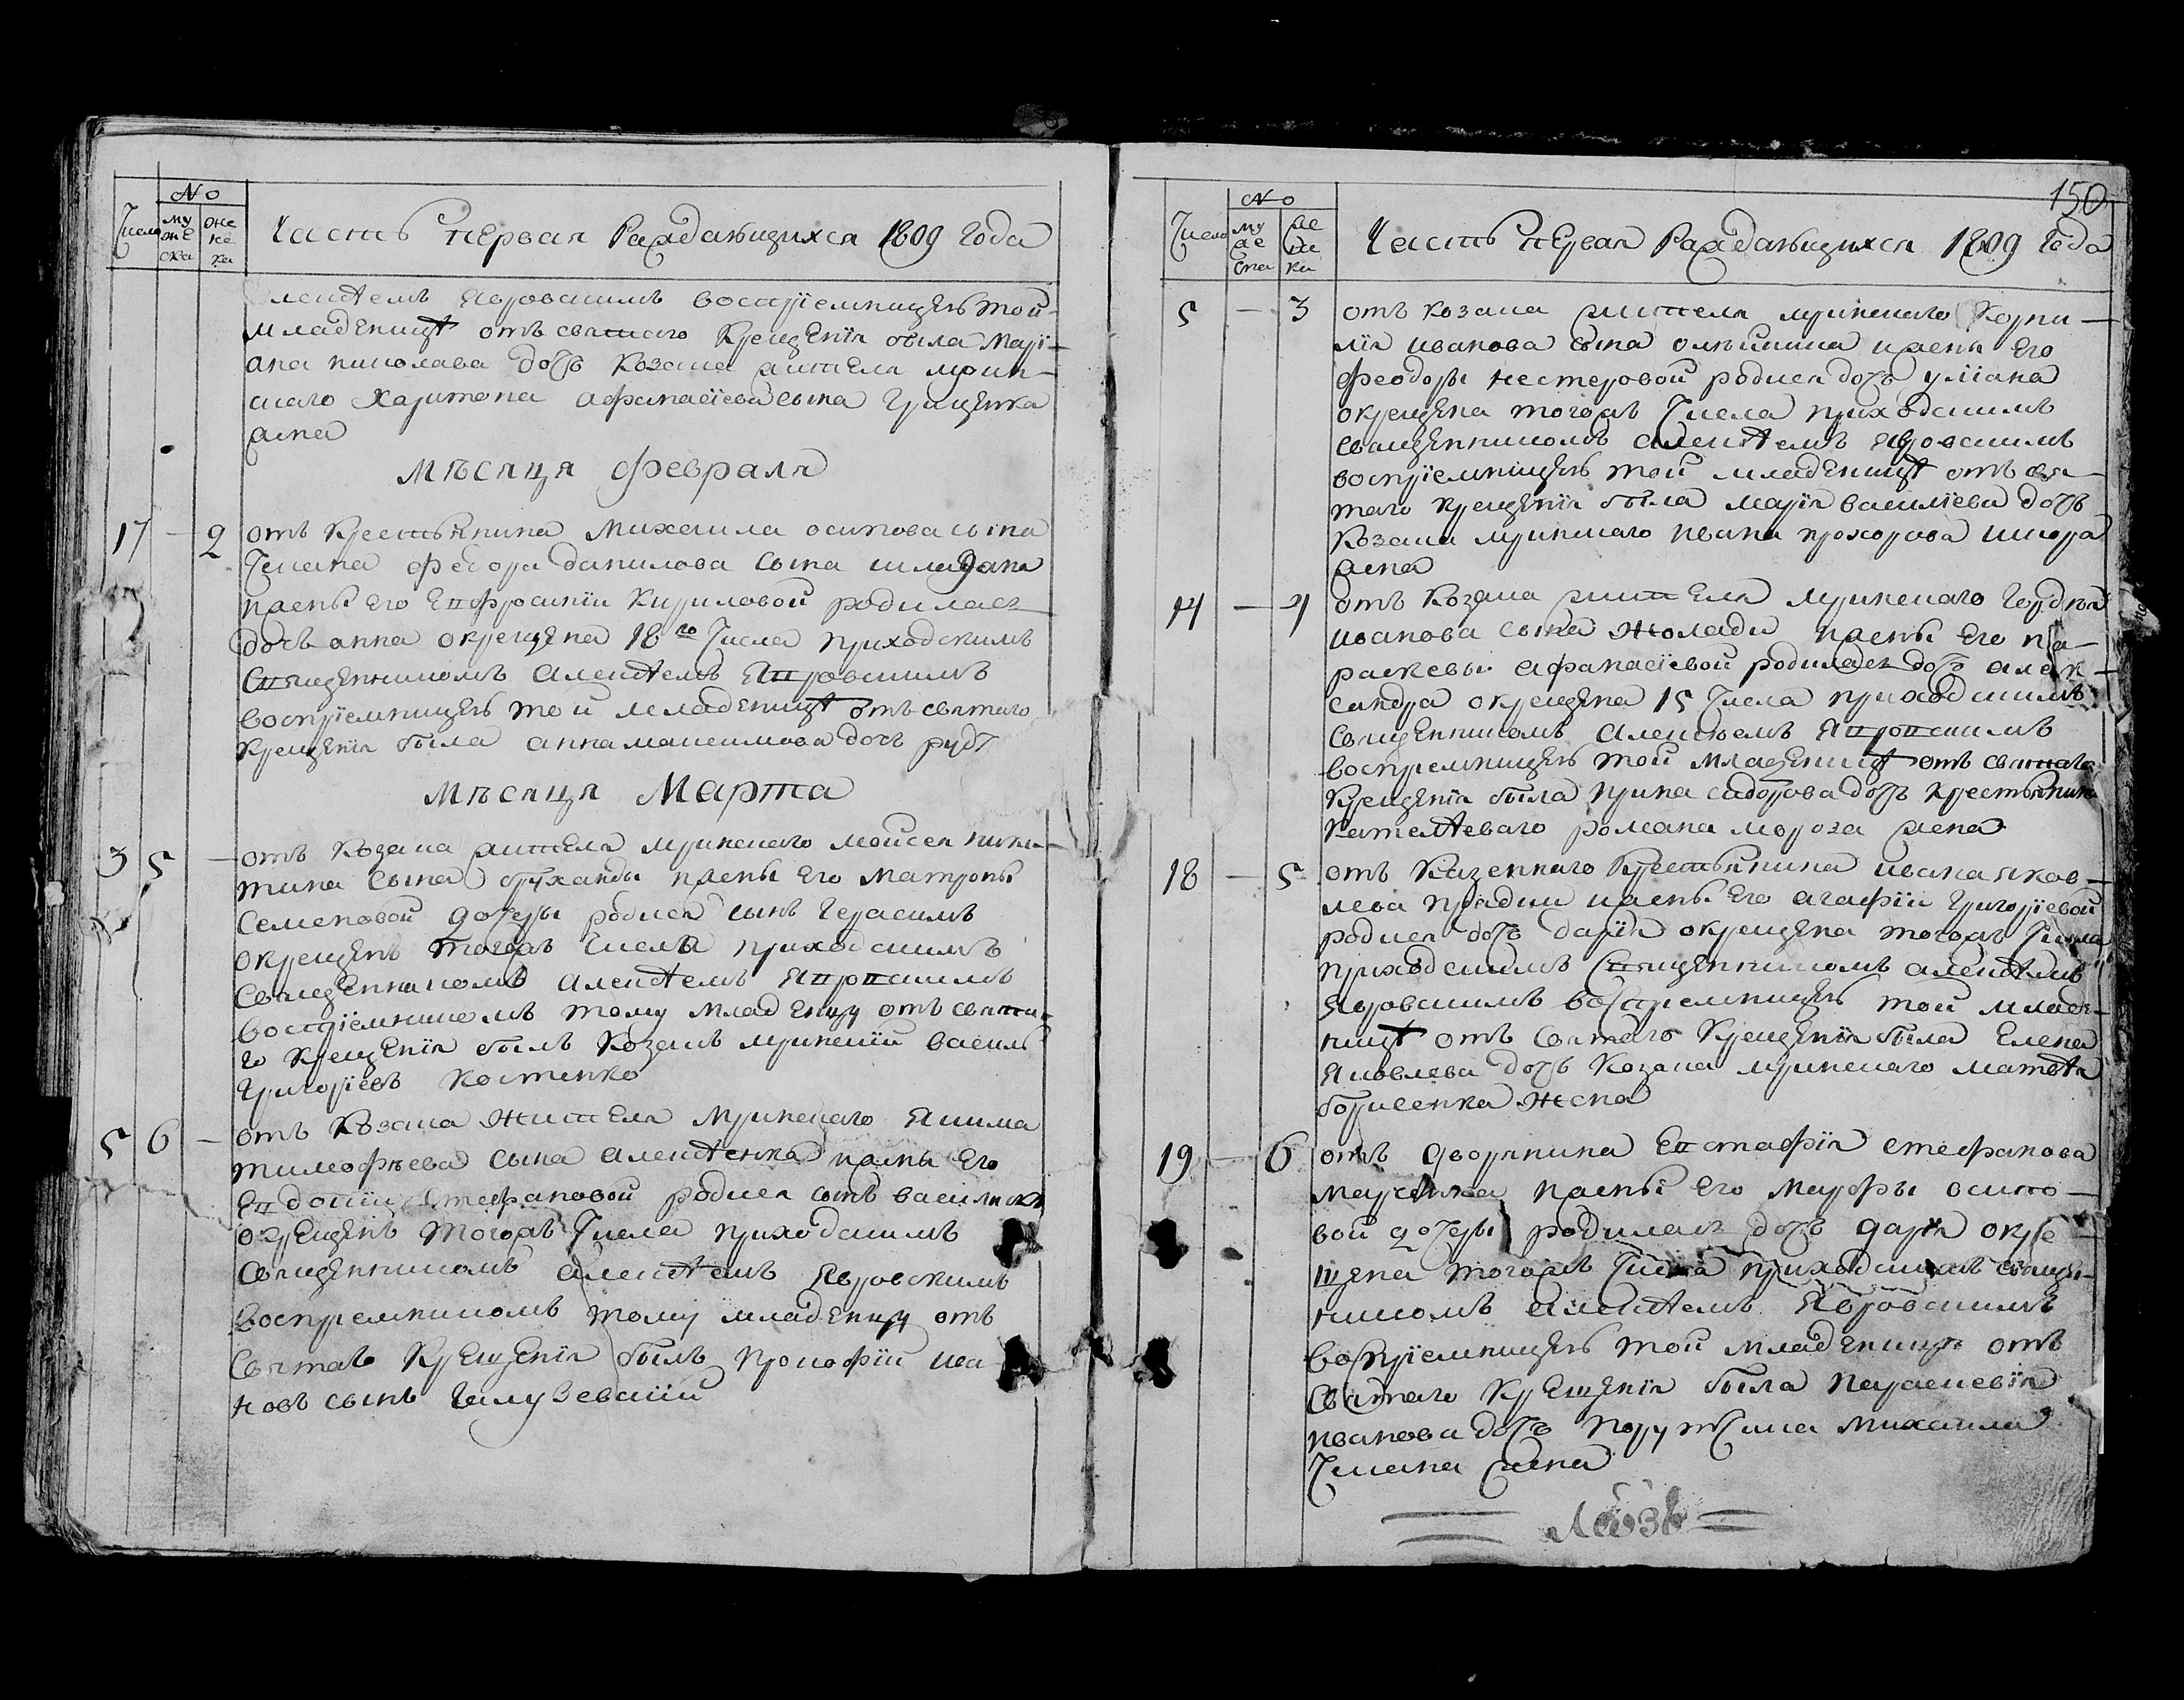 No
Число
му
же
ска
же
нс
ка
Часть первая Раждающихся 1809 Года
алексѣемъ Явровскимъ воспрїемницеюъ той
младеницѣ отъ святаго Крещенїя была Марї-
ана николаева дочь Козака жителя мрин-
скаго Харитона афанасїева сына Грищенка
жена
мѣсяца февраля
17 — 2 отъ Крестьянина михаила осипова сына
федора данилова сына
и жены его Ефросинїи Кириловой родилась
дочь анна окрещена 18го Числа приходскимъ
Священникомъ алексѣемъ Явровскимъ
воспрїемницеюъ той младеницѣ отъ святаго
Крещенїя была анна максимова дочь
мѣсяца Марта
3 5 — отъ Козака жителя мринскаго мойсея ники-
тина сына и жены его матроны
Семеновой дочеры родился сынъ Герасимъ
окрещенъ тогожъ числа приходскимъ
Священникомъ алексѣемъ Явровскимъ
воспрїемникомъ тому младенцу отъ свята-
го Крещенїя былъ Козакъ мринский василь
Григорїевъ Костенко
5 6 — отъ Козака жителя мринскаго Якима
тимофѣева сына алексѣенка и жены Его
Евдокїи Стефановой родился сынъ
окрещенъ тогожъ Числа приходскимъ
Священникомъ алексѣемъ Явровскимъ
воспрїемникомъ тому младенцу отъ
Святаго Крещенїя былъ прокофїи ива
новъ сынъ
150
No
Число
му
же
ска
же
нс
ка
Часть первая Раждающихся 1809 Года
5 — 3 отъ козака жителя мринскаго Корни—
лїя иванова сына олѣйника и жены Его
феодоры нестеровой родися дочь улїана
окрещена тогожъ Числа приходскимъ
священникомъ алексѣемъ Явровскимъ
воспрїемницеюъ той младеницѣ отъ свя—
таго крещенїя была марїя василїева дочь
Козака мринскаго ивана прохорова
жена
14 — 4 отъ Козака жителя мринскаго Гордѣя
иванова сына и жены Его па—
раскевы афанасїевой родилась дочь алек—
сандра окрещена 15 Числа приходскимъ
Священникомъ алексѣемъ Явровскимъ
воспрїемницеюъ той младеницѣ отъ святаго
Крещенїя была ирина сидорова дочь крестьянина
романа мороза жена
18 — 5 отъ Казеннаго Крестьянина ивана яков—
лева и жены Его агафїи Григорїевой
родися дочь дарїя окрещена тогожъ Числа
приходскимъ Священникомъ алексѣемъ
Явровскимъ воспрїемницеюъ той младе-
ницѣ отъ Святаго Крещенїя была Елена
Яковлева дочь Козака мринскаго матвѣя
борисенка жена
19 — 6 отъ дворянина Евстафїя стефанова
и жены Его марфы осипо—
вой дочеры родилась дочь дарїя окре
щена тогожъ Числа приходскимъ священ-
никомъ алексѣемъ Явровскимъ
воспрїемницеюъ той младеницѣ отъ
Святаго Крещенїя была параскевїя
иванова дочь михаила
жена